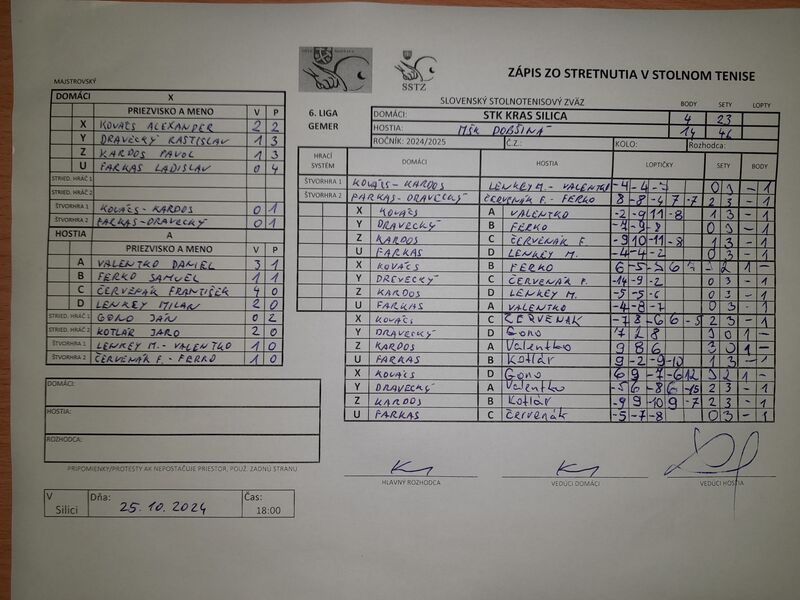 SSTZ
ZÁPIS ZO STRETNUTIA V STOLNOM TENISE
MAJSTROVSKÝ
SLOVENSKÝ STOLNOTENISOVÝ ZVÄZ
BODY SETY LOPTY
6. LIGA
GEMER
DOMÁCI: STK KRAS SILICA 4 23
HOSTIA: MŠK DOBŠINÁ 14 46
ROČNÍK: 2024/2025 Č.Z.: KOLO: Rozhodca:
DOMÁCI X
PRIEZVISKO A MENO V P
X KOVÁCS ALEXANDER 2 2
Y DRAVECKÝ RASTISLAV 1 3
Z KARDOS PAVOL 1 3
U FARKAS LADISLAV 0 4
STRIED. HRÁČ 1
STRIED. HRÁČ 2
ŠTVORHRA 1 KOVÁCS - KARDOS 0 1
ŠTVORHRA 2 FARKAS - DRAVECKÝ 0 1
HOSTIA A
PRIEZVISKO A MENO V P
A VALENTKO DANIEL 3 1
B FERKO SAMUEL 1 1
C ČERVENÁK FRANTIŠEK 4 0
D LENKEY MILAN 2 0
STRIED. HRÁČ 1 GONO JÁN 0 2
STRIED. HRÁČ 2 KOTLÁR JARO 2 0
ŠTVORHRA 1 LENKEY M. - VALENTKO 1 0
ŠTVORHRA 2 ČERVENÁK F. - FERKO 1 0
DOMÁCI:
HOSTIA:
ROZHODCA:
PRIPOMIENKY/PROTESTY AK NEPOSTAČUJE PRIESTOR, POUŽ. ZADNÚ STRANU
V Silici Dňa: 25. 10. 2024 Čas: 18:00
HRACÍ SYSTÉM DOMÁCI HOSTIA LOPTIČKY SETY BODY
ŠTVORHRA 1 KOVÁCS - KARDOS LENKEY M. - VALENTKO -4 -4 0 3 - 1
ŠTVORHRA 2 FARKAS - DRAVECKÝ ČERVENÁK F. - FERKO 8 -8 -4 7 -7 2 3 - 1
X KOVÁCS A VALENTKO -2 -9 11 -8 1 3 - 1
Y DRAVECKÝ B FERKO -9 -8 0 3 - 1
Z KARDOS C ČERVENÁK F. -9 10 -11 -8 1 3 - 1
U FARKAS D LENKEY M. -4 -4 -2 0 3 - 1
X KOVÁCS B FERKO 6 -5 6 3 2 1 -
Y DREVECKÝ C ČERVENÁK F. -14 -9 -2 0 3 - 1
Z KARDOS D LENKEY M. -5 -5 -6 0 3 - 1
U FARKAS A VALENTKO -4 -8 -7 0 3 - 1
X KOVÁCS C ČERVENÁK -7 8 -6 6 -5 2 3 - 1
Y DRAVECKÝ D Gono 7 2 8 3 0 1 -
Z KARDOS A Valentko 9 8 6 3 0 1 -
U FARKAS B Kotlár 9 -2 -9 -10 1 3 - 1
X KOVÁCS D Gono 6 9 -7 -6 12 3 2 1 -
Y DRAVECKÝ A Valentko -5 6 -8 6 -15 2 3 - 1
Z KARDOS B Kotlár -9 9 -10 9 -7 2 3 - 1
U FARKAS C Červenák -5 -7 -8 0 3 - 1
HLAVNÝ ROZHODCA VEDÚCI DOMÁCI VEDÚCI HOSTIA